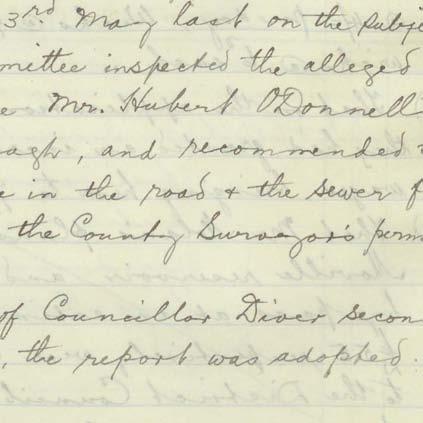 3rd. May last on the subje
mittee inspected the alleged
e Mr. Hubert O'Donnell
agh, and recommended
e in the road & the sewer f
the County Surveyor's perm
of Councillor Diver secon
, the report was adopted.